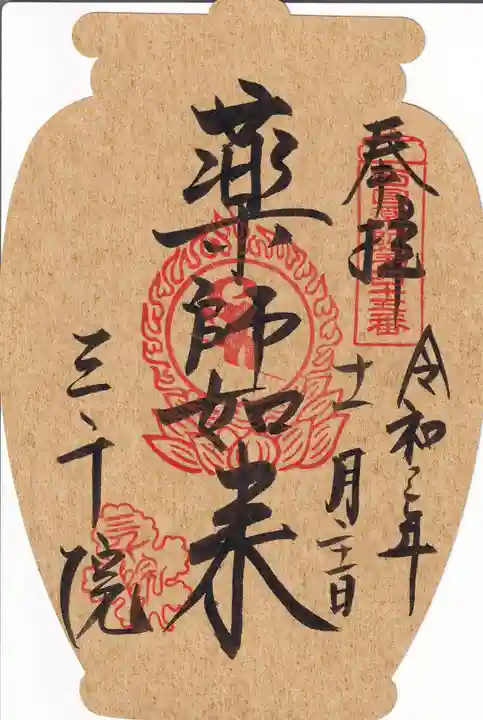 奉拝
令和三年
十一月二十一日
薬師如来
三千院